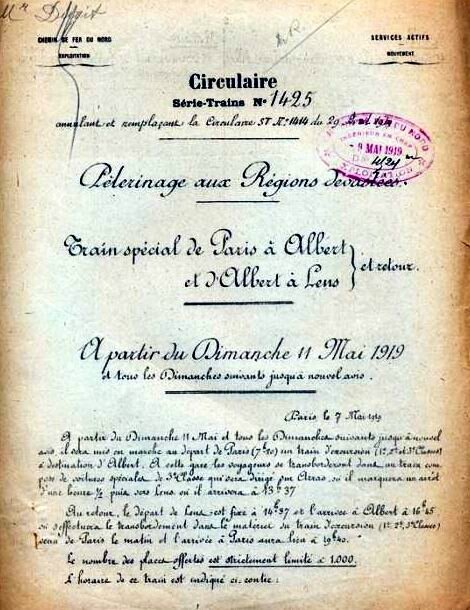 Mr
CHEMIN DE FER DU NORD
EXPLOITATION
SERVICES ACTIFS
MOUVEMENT
Circulaire
Série-Trains No 1425
annulant et remplaçant la Circulaire ST No 1414 du 29 1919
NORD
INGÉNIEUR EN CHEF
9 MAI 1919
EXPLOITATION
Pèlerinage aux Régions dévastées.
Train spécial de Paris à Albert
et d'Albert à Lens } et retour.
A partir du Dimanche 11 Mai 1919
et tous les Dimanches suivants jusqu'à nouvel avis.
Paris, le 7 Mai 1919
A partir du Dimanche 11 Mai et tous les Dimanches suivants jusqu'à nouvel
avis, il sera mis en marche au départ de Paris (7h10) un train d'excursion (1e, 2e et 3e Classes)
à destination d'Albert. A cette gare les voyageurs se transborderont dans un train com
posé de voitures spéciales de 3e Classe qui sera dirigé par Arras où il marquera un arrêt
d'une heure 1/2 puis vers Lens où il arrivera à 13h37
Au retour, le départ de Lens est fixé à 14h37 et l'arrivée à Albert à 16h45
où s'effectuera le transbordement dans le matériel du train d'excursion (1e, 2e, 3e Classes)
venu de Paris le matin et l'arrivée à Paris aura lieu à 19h40.
Le nombre des places offertes est strictement limité à 1.000.
L'horaire de ce train est indiqué ci-contre: